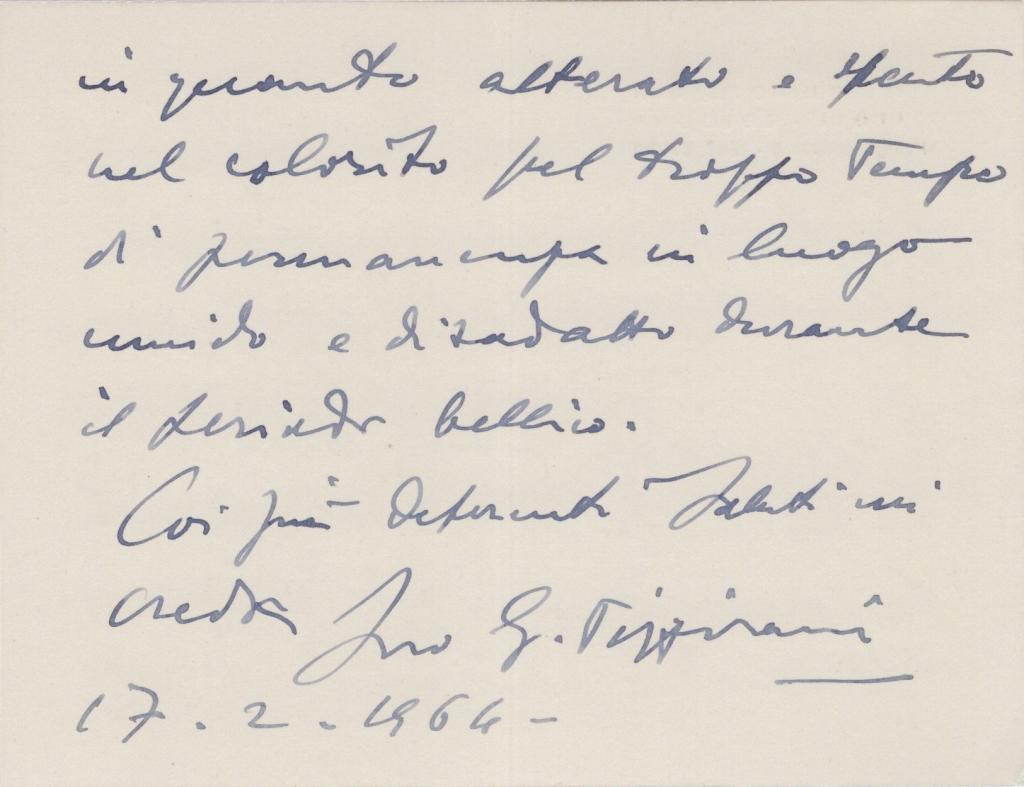 in quanto alterato e spento
nel colorito pel troppo tempo
di permanenza in luogo
umido e disadatto durante
il periodo bellico.
Coi più deferenti saluti mi
creda Suo G. Tizzirani
17 . 2 . 1964 -